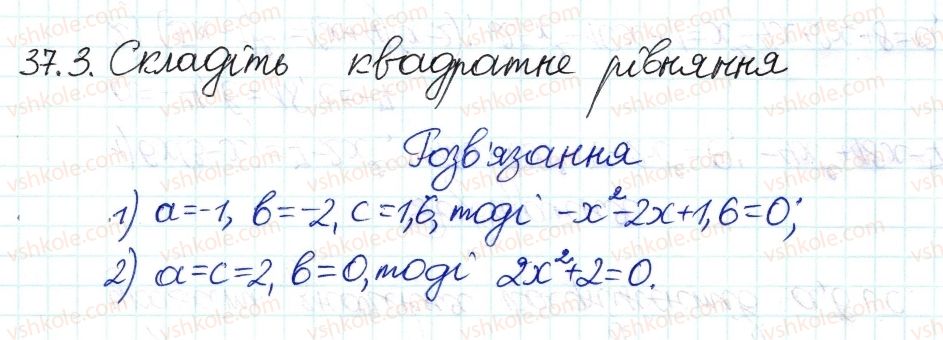 37.3. Складіть квадратне рівняння
Розв'язання
1) a=-1, b=-2, c=1,6, тоді -x²-2x+1,6=0;
2) a=c=2, b=0, тоді 2x²+2=0.